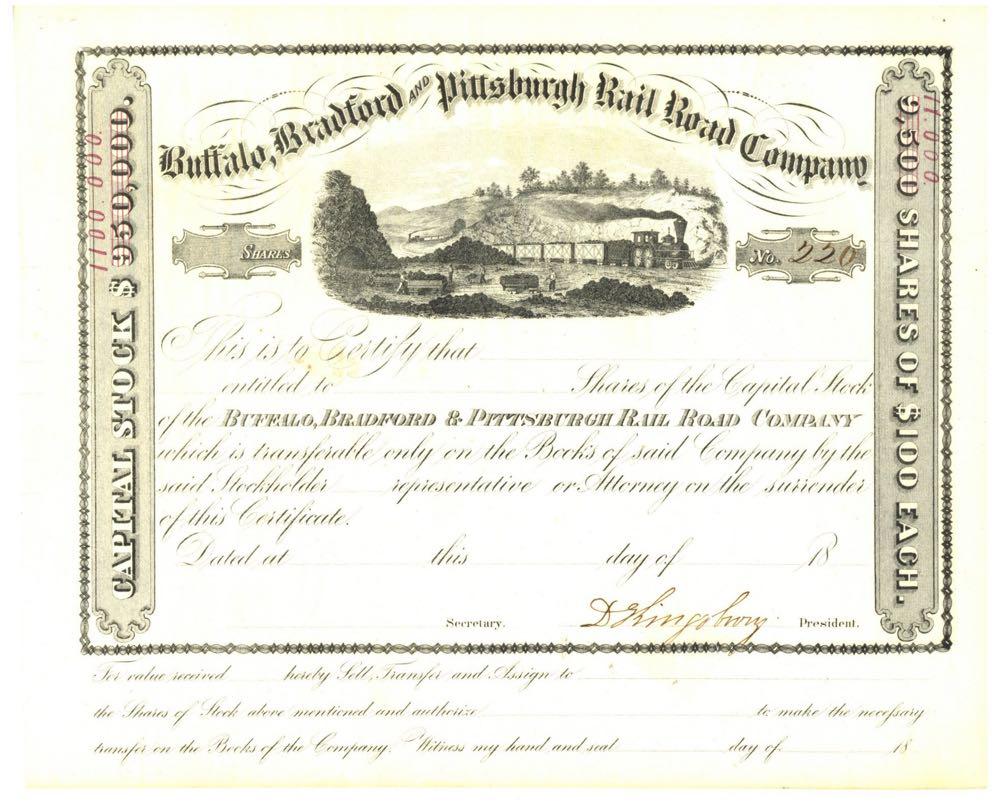 Buffalo, Bradford AND Pittsburgh Rail Road Company
CAPITAL STOCK $950,000.
1100.000.
9,500 SHARES OF $100 EACH.
11.000.
SHARES
No. 220
This is to Certify that
entitled to Shares of the Capital Stock
of the BUFFALO, BRADFORD & PITTSBURGH RAIL ROAD COMPANY
which is transferable only on the Books of said Company by the
said Stockholder representative or Attorney on the surrender
of this Certificate.
Dated at this day of 18
Secretary. D Kingsbury President.
For value received hereby Sell, Transfer and Assign to
the Shares of Stock above mentioned and authorize to make the necessary
transfer on the Books of the Company. Witness my hand and seal day of 18